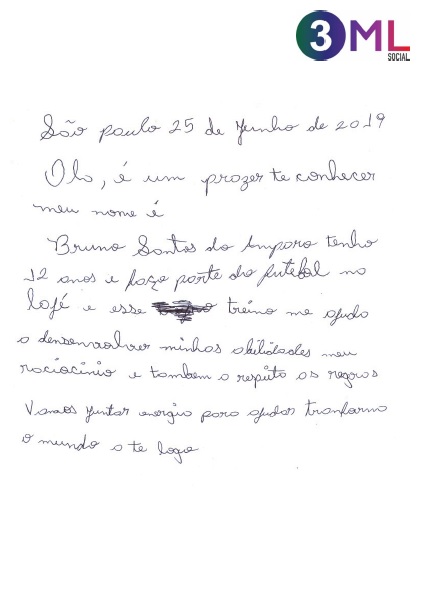 3ML
SOCIAL
São paulo 25 de Junho de 2019
Ola, é um prazer te conhecer
meu nome é
Bruno Santos do Amparo tenho
12 anos e faço parte do futebol no
lafé e esse treino me ajuda
a densenvolver minhas abilidades meu
raciocinio e tambem o respeito as regras
Vamos juntar energia para ajudar tranforma
o mundo a te logo